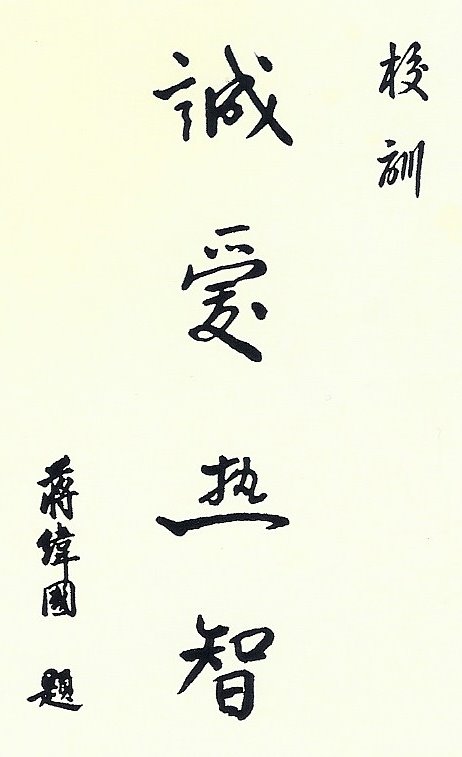 校訓
誠愛热智
蔣緯國題